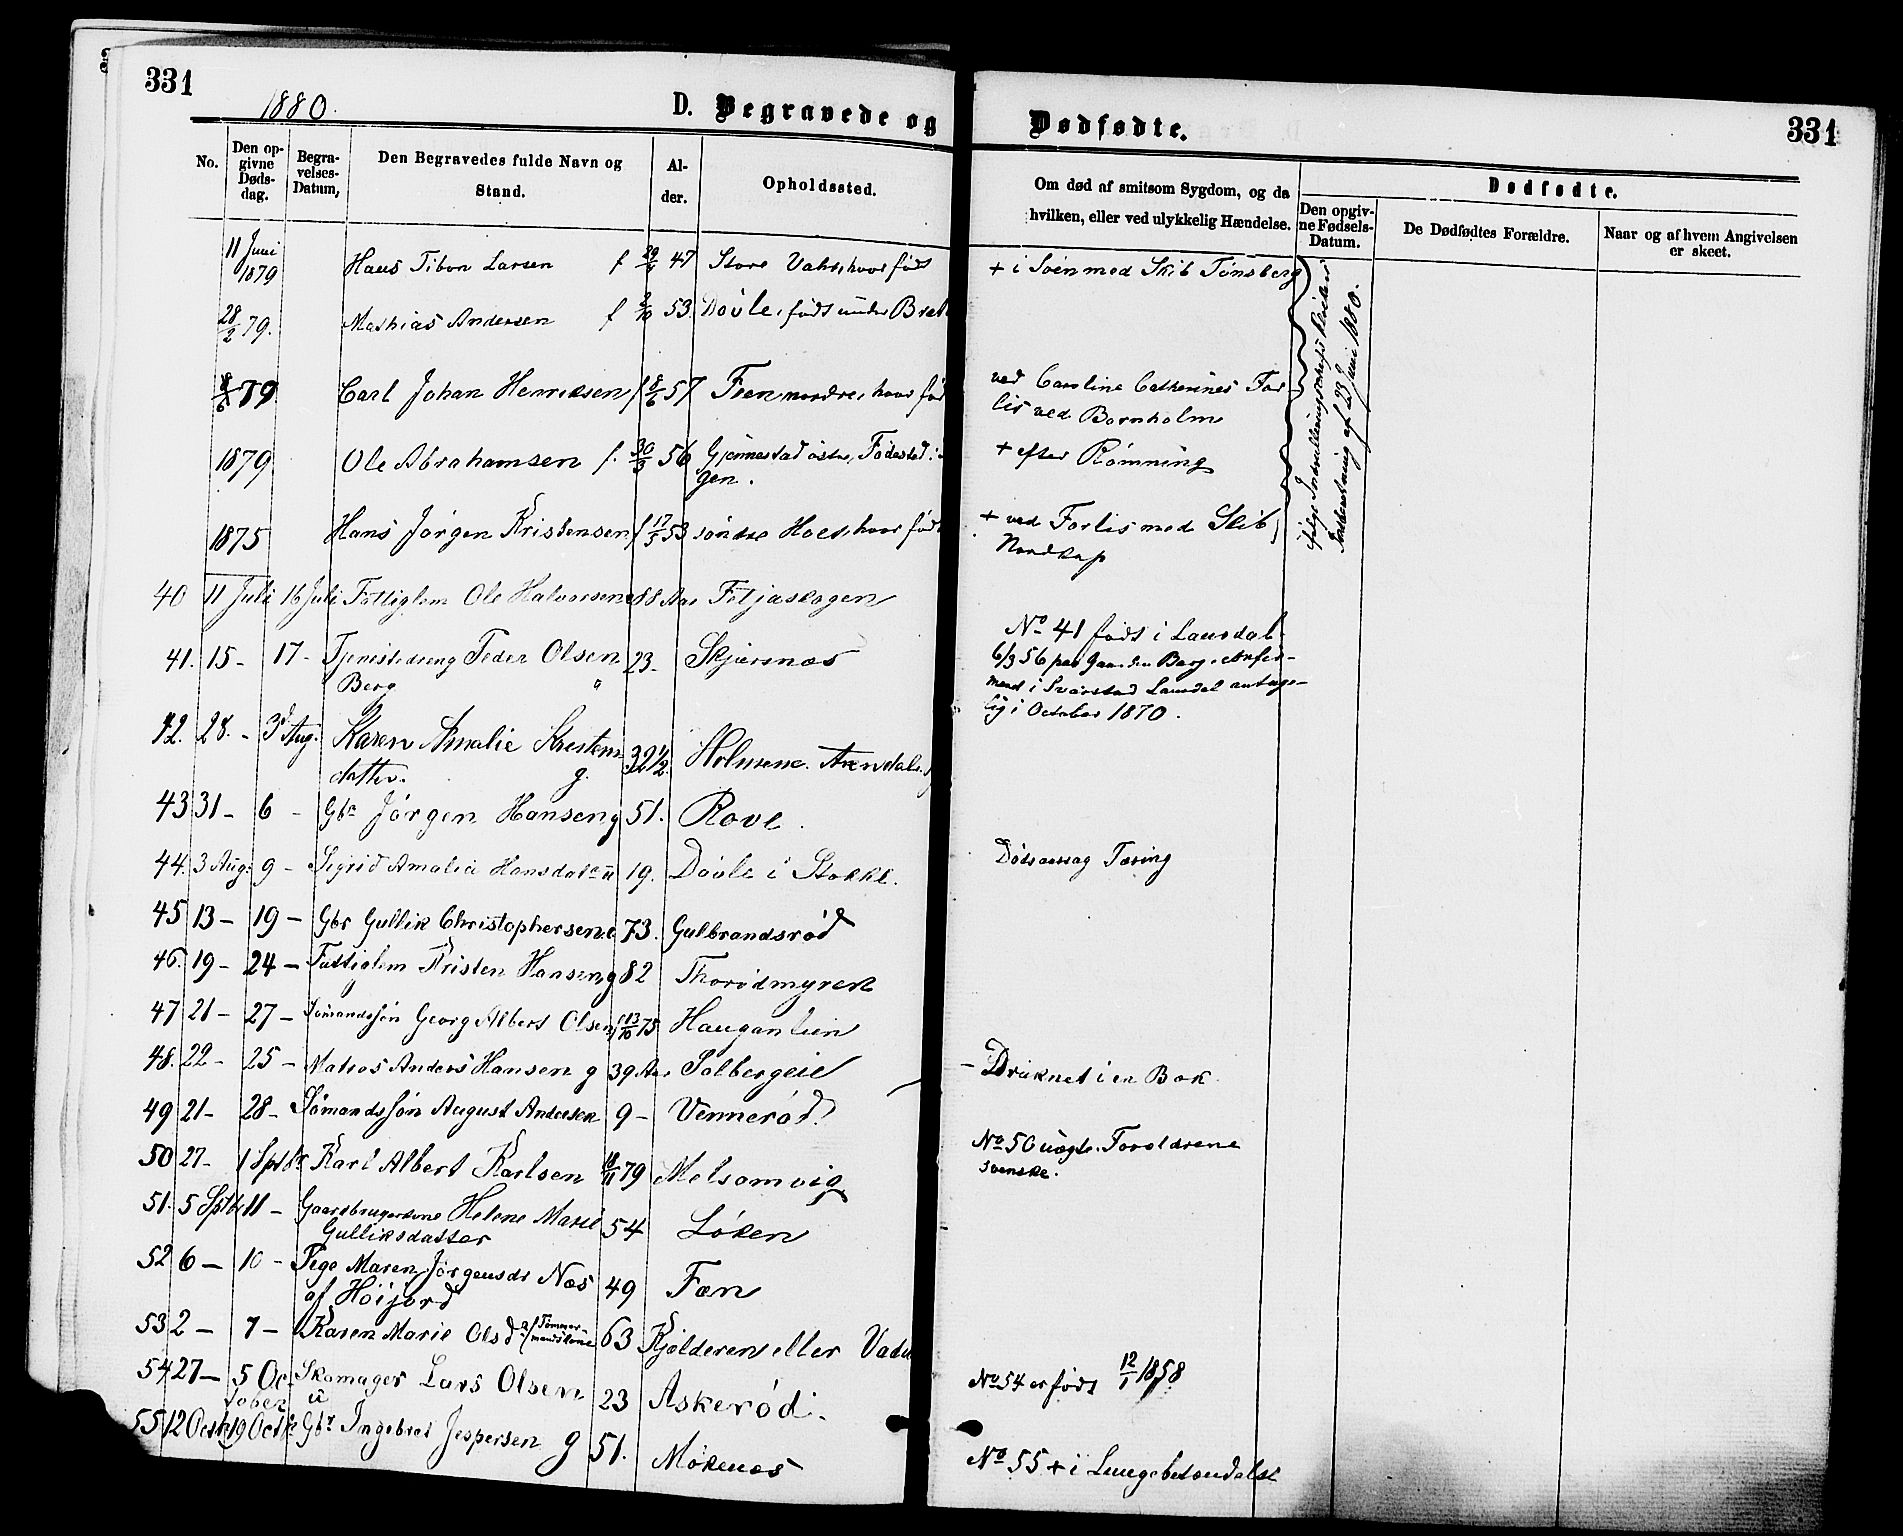 331
1880.
D. Begravede og
Dødfødte.
331
No.
Den op-
givne
Døds-
dag.
Begra-
velses-
Datum,
Den Begravedes fulde Navn og
Stand.
Al-
der.
Opholdssted.
Om død af smitsom Sygdom, og da
hvilken, eller ved ulykkelig Hændelse.
Dødfødte.
Den opgiv-
ne Fødsels-
Datum.
De Dødfødtes Forældre.
Naar og af hvem Angivelsen
er skeet.
11 Juni
1879 Hans Larsen f 47 Store hvor født + i Søen med Skib Tønsberg
28/2 79. Mathias Andersen f 53. Døvle, født under
79 Carl Johan Henriksen f 8/6 57 Fæn nordre, hvor fød ved Caroline Cathrines For-
lis ved Bornholm
1879 Ole Abrahamsen f. 30/3 56 Gjennestad østre, Fødested: + efter Rømning
gen.
1875 Hans Jørgen Kristensen f 17/5 53 søndre hvor født + ved Forlis med Skib
Nordkap
ifølge
Indberetning af 23 Juni 1880.
40 11 Juli 16 Juli Fattiglem Ole Halvorsen 88 Aar Feljaskogen
41. 15 - 17 - Tjenestedreng Peder Olsen 23. Skjærsnæs
Berg
No 41 født i Laurdal
6/3 56 paa Gaarden Berg, confir-
meret i Svarstad Laurdal antage-
lig i October 1870.
42. 28. - 3d Aug. Karen Amalie Kristens
datter. g. 32 1/2 Holmene. Arendal.
43 31 - 6 - Gbr Jørgen Hansen g 51. Rove.
44. 3 Aug. 9 - Sigrid Amalia Hansdatr u 19. Døvle i Stokke. Dødsaarsag Tæring
45 13 - 19 - Gbr Gullik Christophersen 73. Gulbrandsrød
46. 19 - 24 - Fattiglem Kristen Hansen g 82 Thorødmyren
47 21 - 27 - Sømandssøn Georg Albert Olsen 13/10 75 Haugan
48. 22 - 25 - Matros Anders Hansen g 39 Aar Solbergeie - Druknet i en Bæk.
49 21 - 28 - Sømandssøn August Andersen 9 - Vennerød.
50 27 - 1 Sptbr Karl Albert Karlsen 79 Melsomvig No 50 uægte. Forældrene
svenske.
51. 5 Sptbr 11 - Gaardbrugerkone Helene Marie
Gulliksdatter 54 Løken
52 6 - 10 - Pige Maren Jørgensdr Næs
af Høijord 49 Fæn
53 2 - 7 - Karen Marie Olsd Tømmer-
mandskone 63 Kjølderen eller
54 27 - 5 Oc-
tober Skomager Lars Olsen
u 23 Askerød. No 54 er født 12/1 1858
55 12 Octb 19 Octbr Gbr Ingebret Jespersen g 51. Møkenæs No 55 + i Lungebetændelse